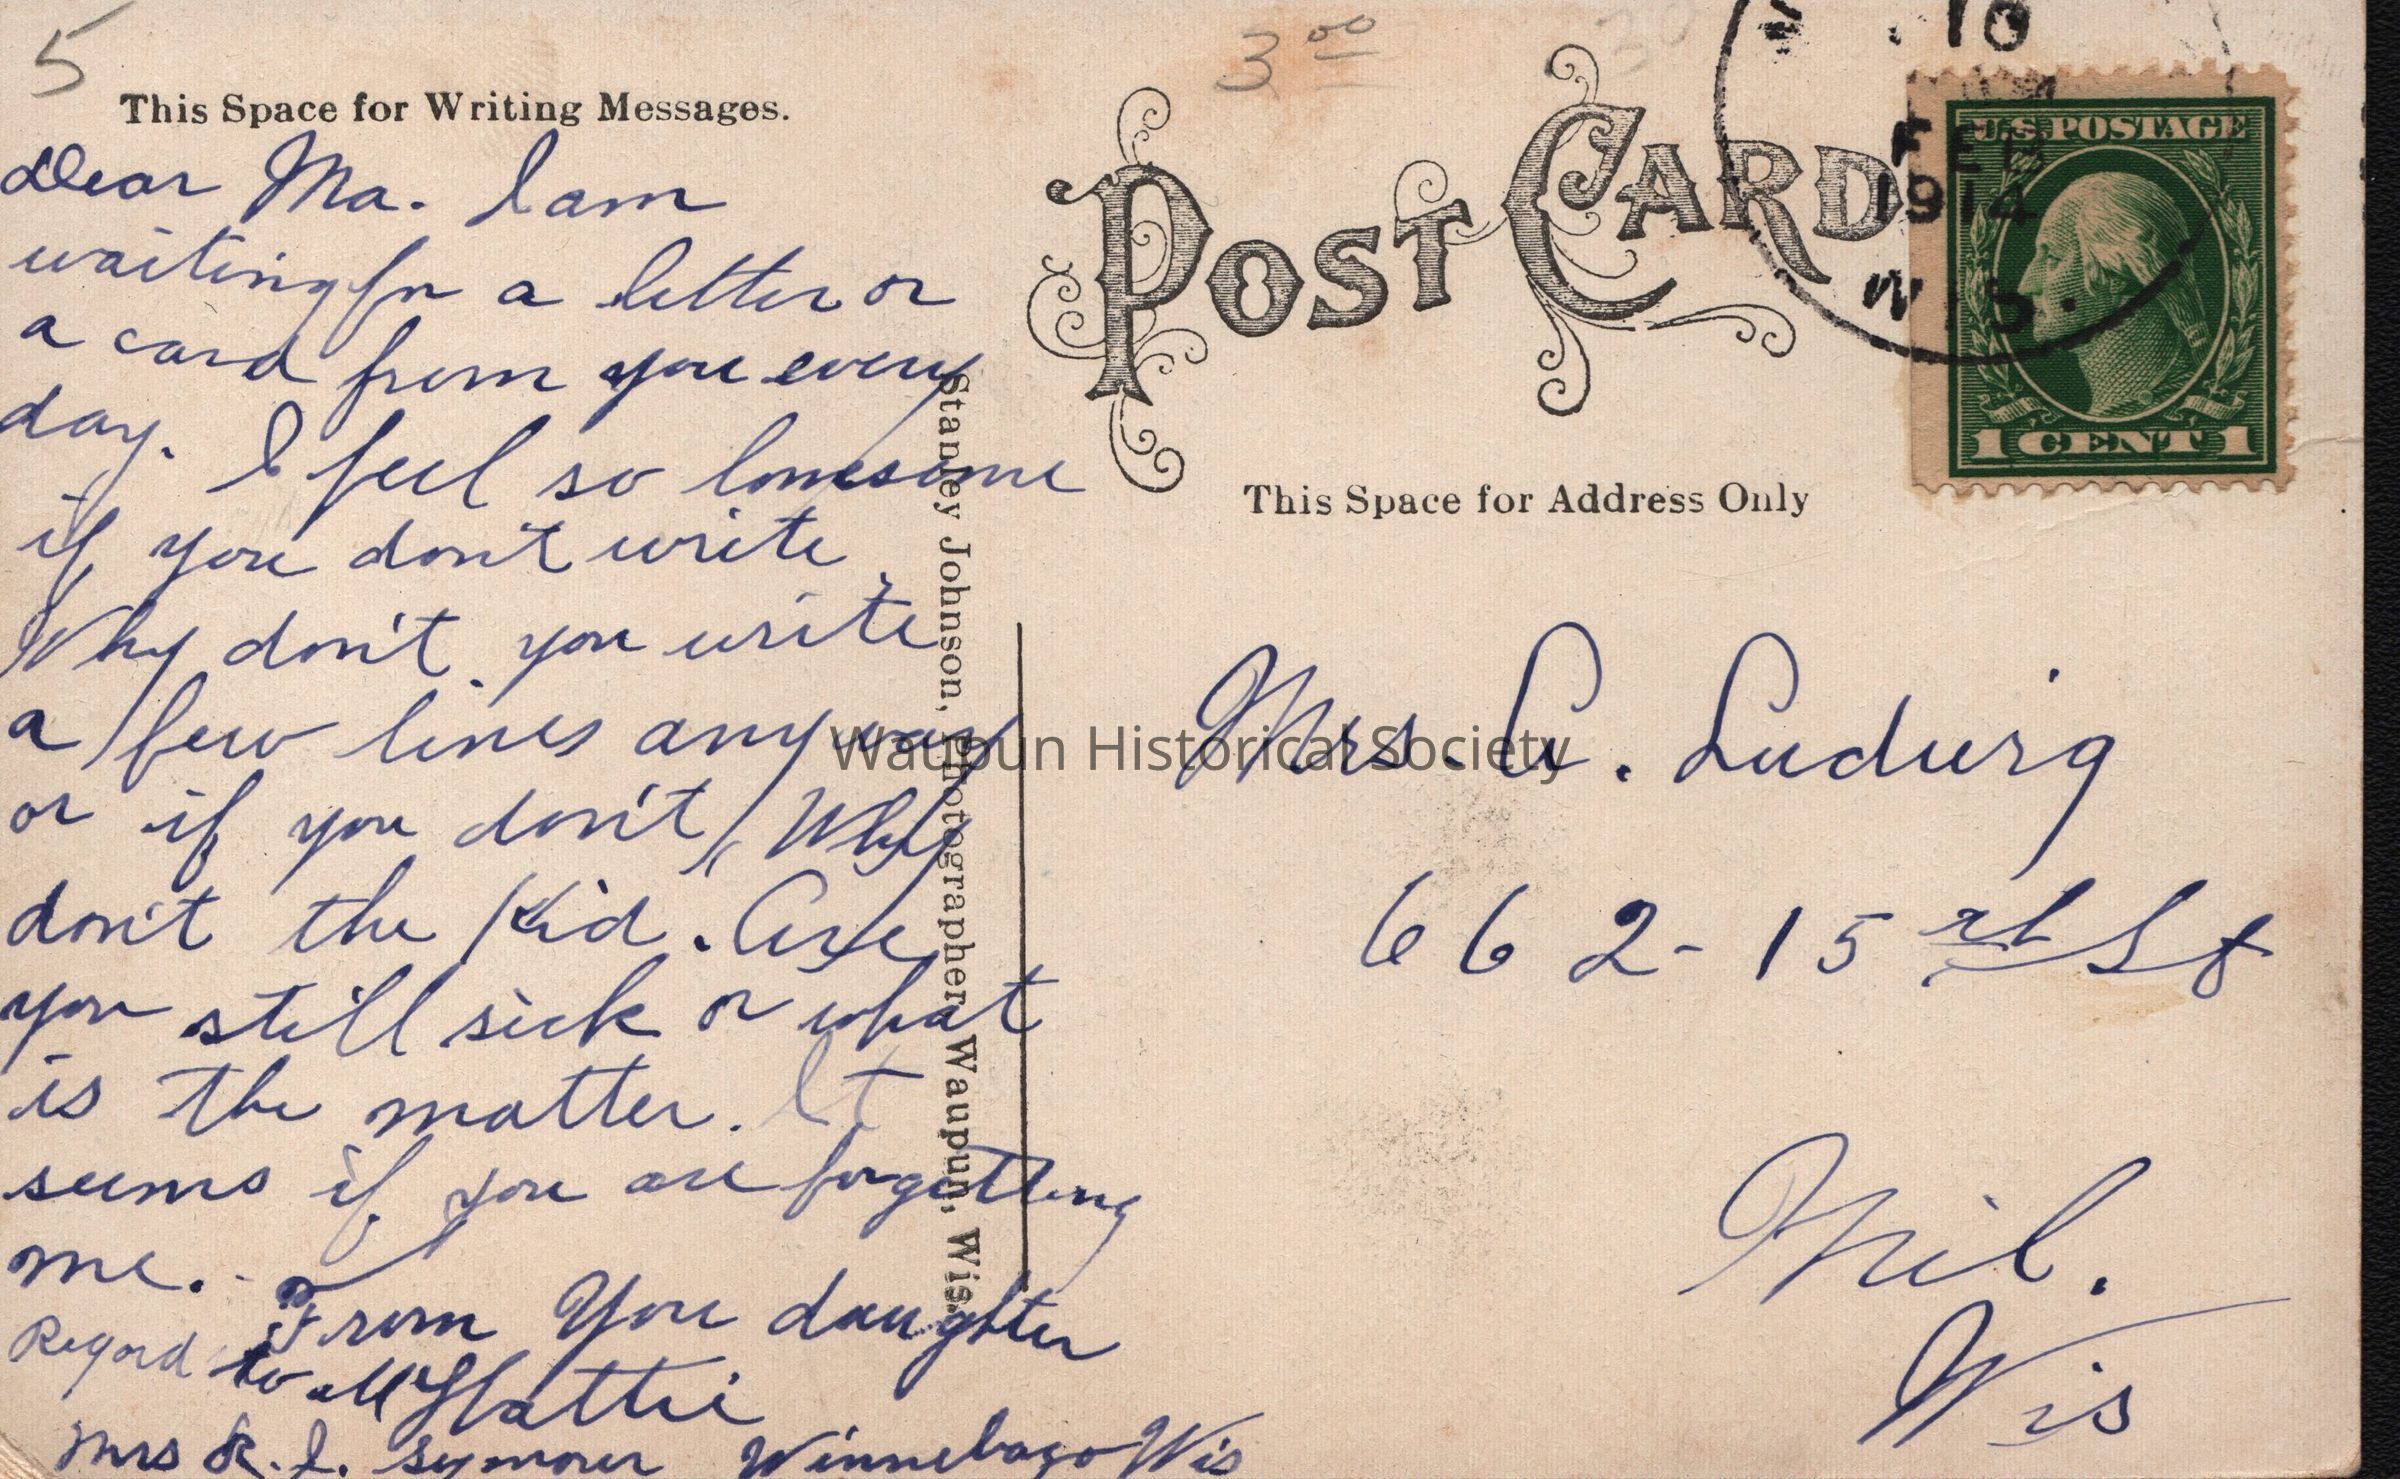 5
3 00
This Space for Writing Messages.
Dear Ma. I am
waiting for a letter or
a card from you every
day. I feel so lonesome
if you don't write.
Why don't you write
a few lines any way
or if you don't, Why
don't the Kid. Are
you still sick or what
is the matter. It
seems if you are forgetting
me.
From You daughter
Regard to all Hattie
Mrs R. J. Seymour Winnebago Wis
Stanley Johnson, Photographer, Waupun, Wis.
POST CARD
10
FEB
1914
WIS.
U.S. POSTAGE
1 CENT 1
This Space for Address Only
Mrs. A. Ludwig
662-15 St
Mil.
Wis
Waupun Historical Society